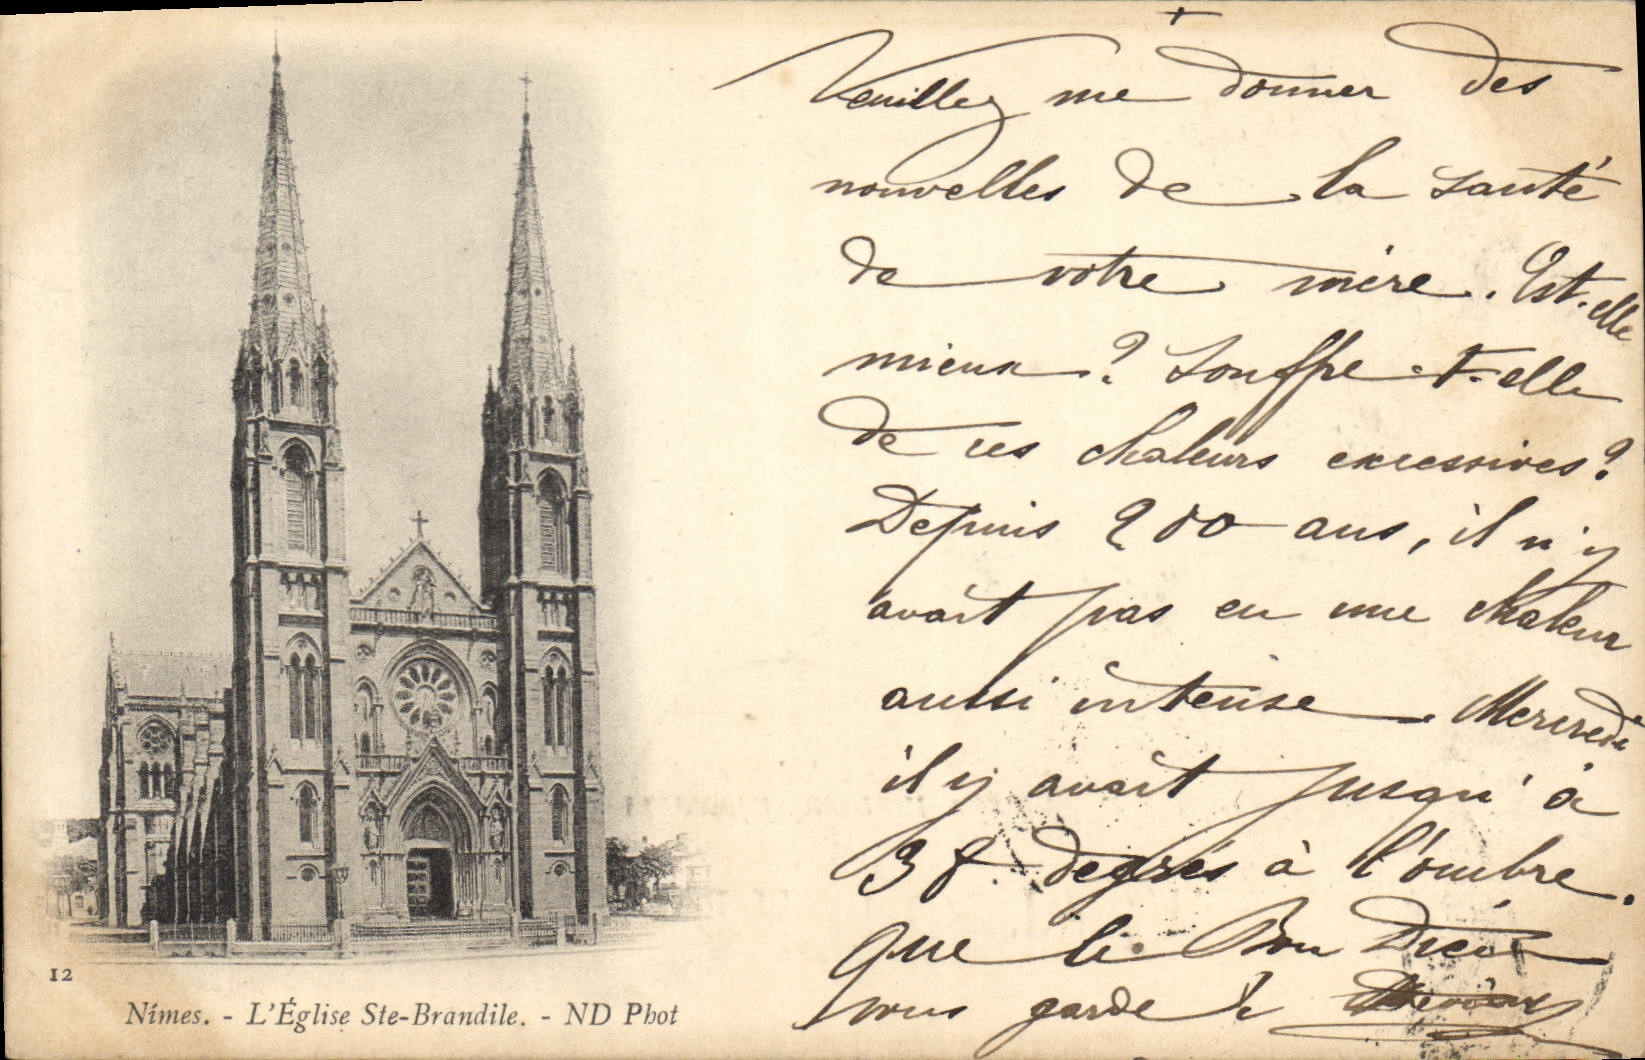 Veuillez me donner des
nouvelles de la santé
de votre mère. Est-elle
mieux ? Souffre-t-elle
de ces chaleurs excessives ?
Depuis 200 ans, il n'y
avait pas eu une chaleur
aussi intense. Mercredi
il y avait jusqu'à
38 degrés à l'ombre.
Que le Bon Dieu
vous garde !
12
Nîmes. - L'Église Ste-Brandile. - ND Phot